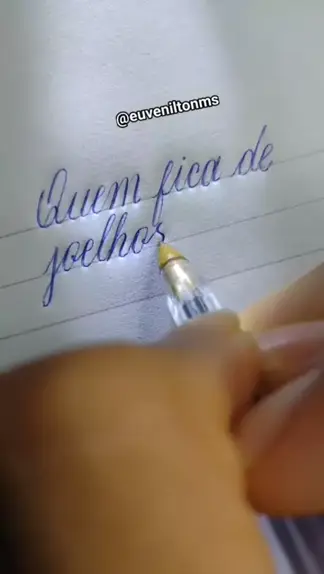 @euveniltonms
Quem fica de
joelhos